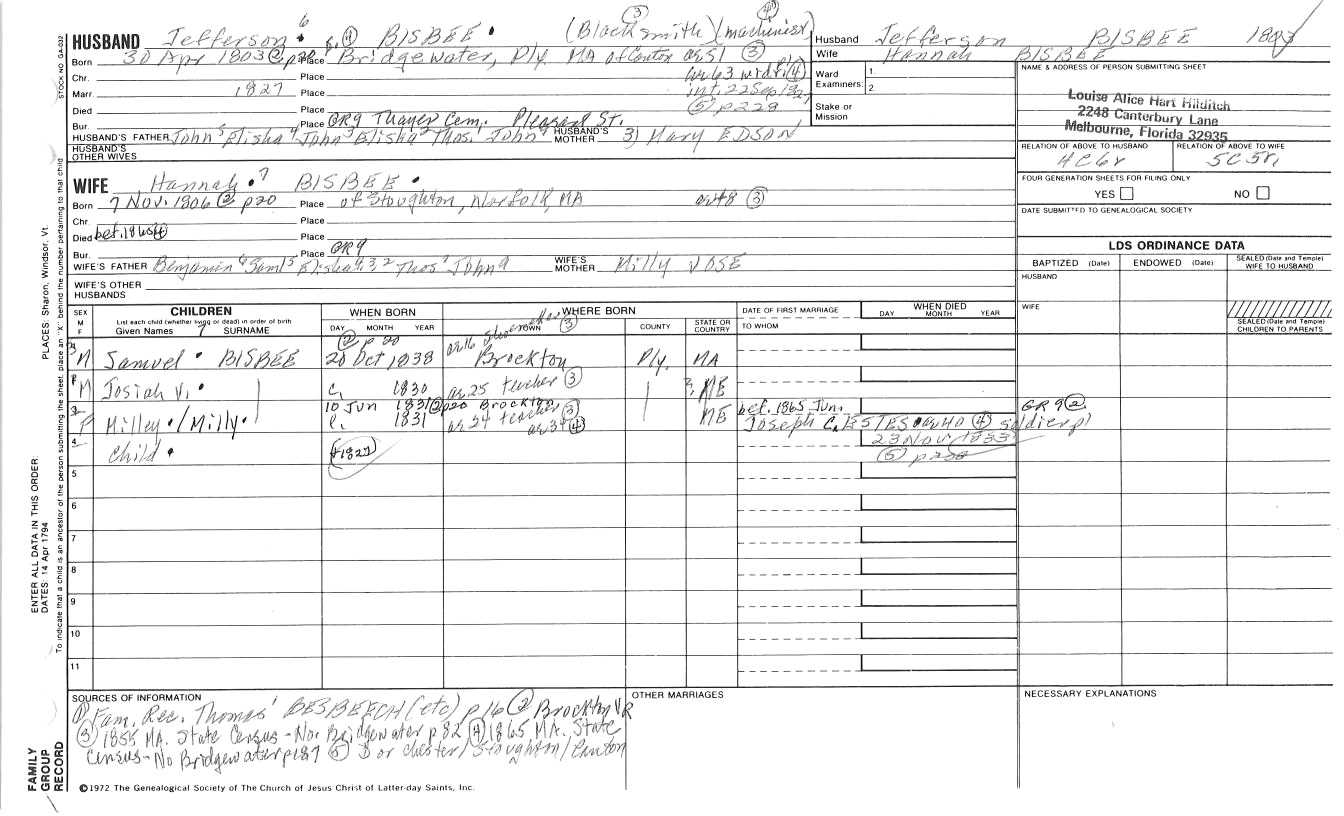 HUSBAND Jefferson 6 BISBEE (Blacksmith) ③ (machinist) ④
Born 30 Apr 1803 ② p20 Place Bridgewater, Ply. MA of Canton ae 51 ③
Chr. Place ae 63 ④
Marr. 1827 Place int. 22 Sep 1827
Died Place ⑤ p228
Bur. Place GR9 Thayer Cem. Pleasant St.
HUSBAND'S FATHER John 5 Elisha 4 John 3 Elisha 2 Thos. John HUSBAND'S MOTHER 3) Mary EDSON
HUSBAND'S OTHER WIVES
WIFE Hannah 7 BISBEE
Born 7 Nov. 1806 ② p20 Place of Stoughton, Norfolk, MA ae 48 ③
Chr. Place
Died bef. 1865 ④ Place
Bur. Place GR9
WIFE'S FATHER Benjamin 6 Saml 5 Elisha 4,3,2 Thos 1 John WIFE'S MOTHER Milly VOSE
WIFE'S OTHER HUSBANDS
Husband Jefferson BISBEE 1803
Wife Hannah BISBEE
Ward 1
Examiners: 2
Stake or Mission
NAME & ADDRESS OF PERSON SUBMITTING SHEET
Louise Alice Hart Hilditch
2248 Canterbury Lane
Melbourne, Florida 32935
RELATION OF ABOVE TO HUSBAND RELATION OF ABOVE TO WIFE
4C6r 5C5r
FOUR GENERATION SHEETS FOR FILING ONLY
YES NO
DATE SUBMITTED TO GENEALOGICAL SOCIETY
LDS ORDINANCE DATA
BAPTIZED (Date) ENDOWED (Date) SEALED (Date and Temple) WIFE TO HUSBAND
HUSBAND
WIFE
SEALED (Date and Temple) CHILDREN TO PARENTS
SEX M F CHILDREN WHEN BORN WHERE BORN DATE OF FIRST MARRIAGE WHEN DIED
List each child (whether living or dead) in order of birth
Given Names 7 SURNAME DAY MONTH YEAR TOWN COUNTY STATE OR COUNTRY TO WHOM DAY MONTH YEAR
② p20 ae 16 ③
M Samuel BISBEE 20 Oct 1838 Brockton Ply. MA
M Josiah V. C. 1830 ae 25 teacher ③ ME
10 Jun 1831 ② p20 Brockton bef. 1865 Jun. GR9 ②
F Milley/Milly C. 1831 ae 24 teacher ③ ae 34 ④ ME Joseph C. ESTES ae 40 ④ soldier
4 Child (+1827) 23 Nov 1833
⑤ p228
5
6
7
8
9
10
11
SOURCES OF INFORMATION
① Fam. Rec. Thomas BESBEECH (etc) p16 ② Brockton VR
③ 1855 MA. State Census - No. Bridgewater p82 ④ 1865 MA. State
Census - No Bridgewater p187 ⑤ Dorchester/Stoughton/Canton
OTHER MARRIAGES
NECESSARY EXPLANATIONS
©1972 The Genealogical Society of The Church of Jesus Christ of Latter-day Saints, Inc.
STOCK NO. GA-032
PLACES: Sharon, Windsor, Vt.
ENTER ALL DATA IN THIS ORDER
DATES: 14 Apr 1794
To indicate that a child is an ancestor of the person submitting the sheet, place an "X" behind the number pertaining to that child
FAMILY GROUP RECORD